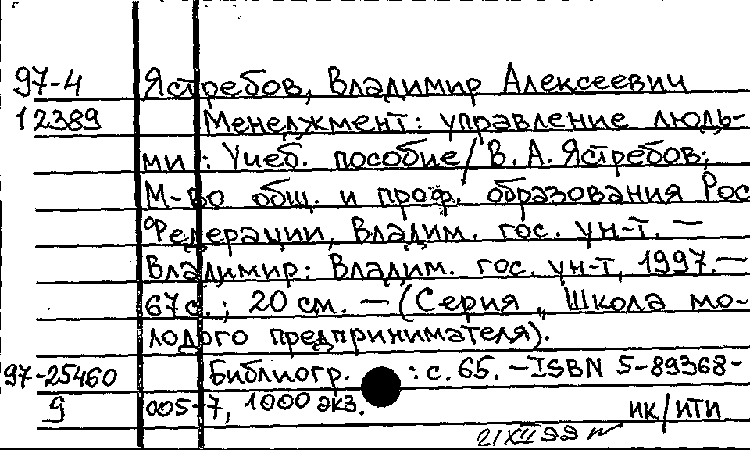 97-4 Ястребов, Владимир Алексеевич
12389 Менеджмент: управление людь-
ми: Учеб. пособие / В. А. Ястребов;
М-во общ. и проф. образования Рос
Федерации, Владим. гос. ун-т. —
Владимир: Владим. гос. ун-т, 1997. —
67 с.; 20 см. — (Серия "Школа мо-
лодого предпринимателя).
97-25460 Библиогр. : с. 65. — ISBN 5-89368-
9 005-7, 1000 экз. ИК/ИТИ
21 XII 99